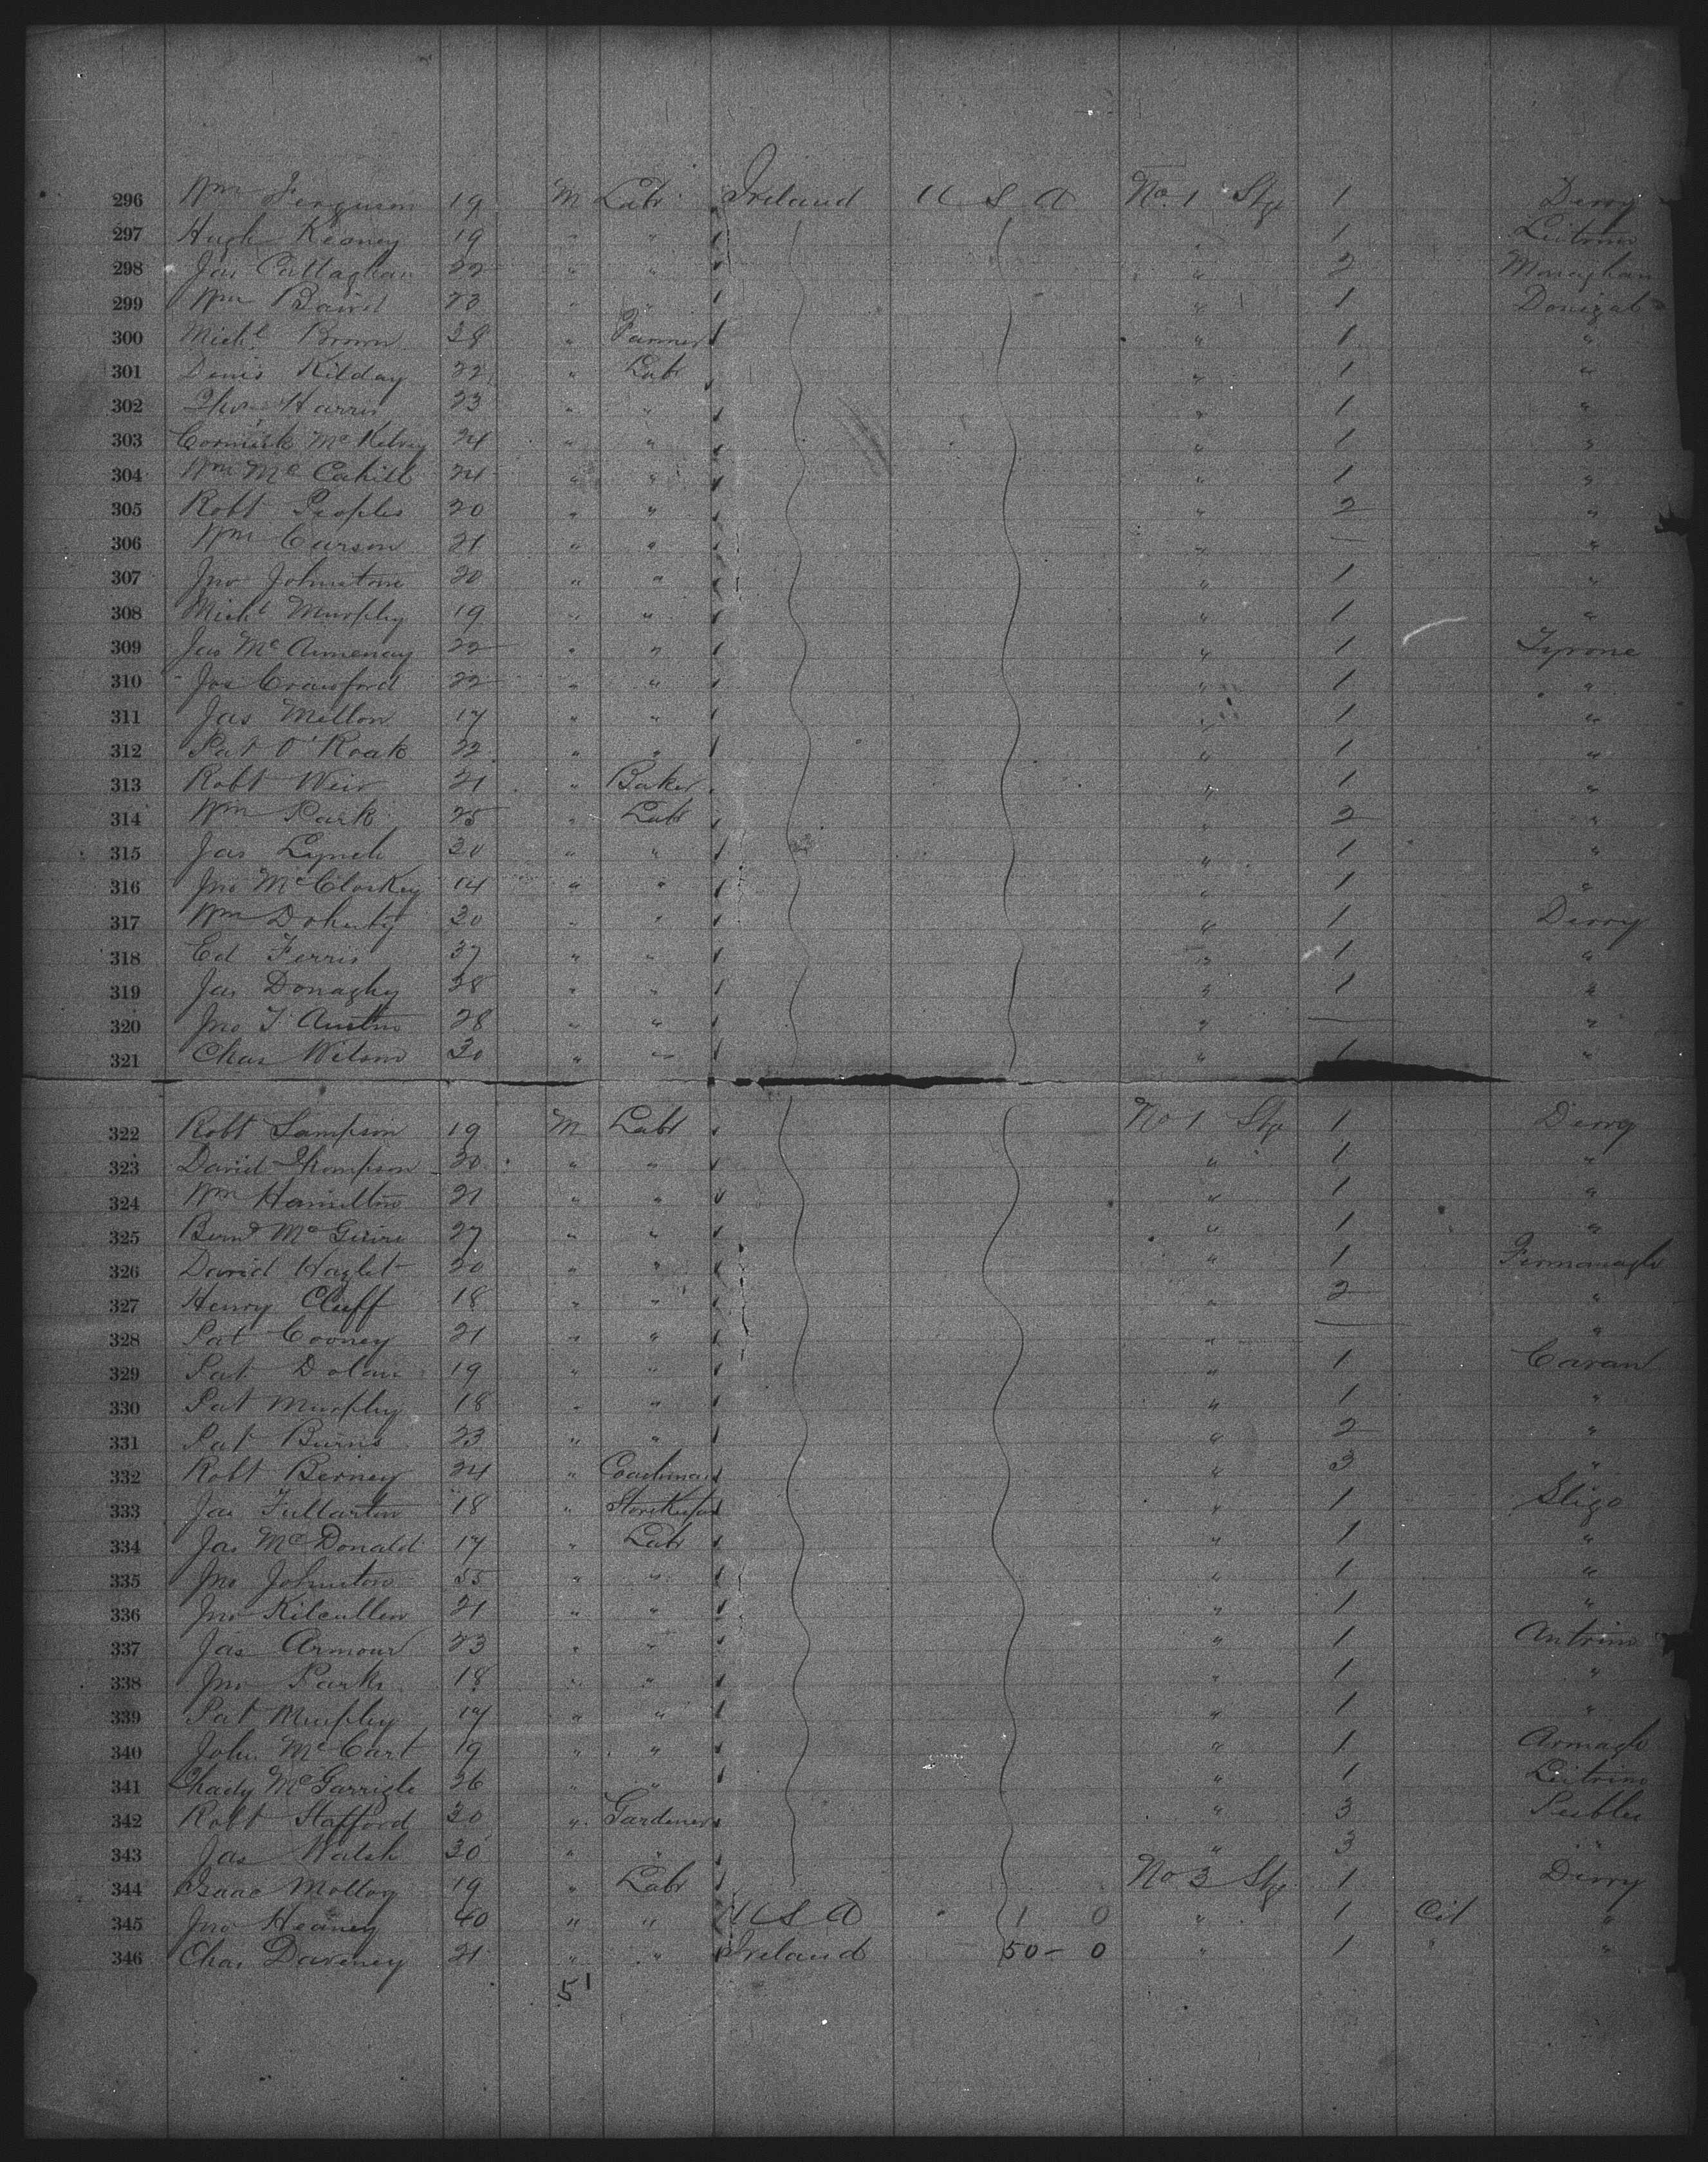 296 Wm Ferguson 19 M Labr Ireland U S A No. 1 Stge 1 Derry
297 Hugh Keaney 19 " " " 1 Leitrim
298 Jas Callaghan 22 " " " 2 Monaghan
299 Wm Baird 23 " " " 1 Donegal
300 Michl Brown 38 " Farmer " 1 "
301 Denis Kilday 22 " Labr " 1 "
302 Thos Harris 23 " " " 1 "
303 Cormick Mc Kelvy 24 " " " 1 "
304 Wm Mc Cahill 24 " " " 1 "
305 Robt Peoples 20 " " " 2 "
306 Wm Carson 21 " " " — "
307 Jno Johnstone 20 " " " 1 "
308 Michl Murphy 19 " " " 1 "
309 Jas Mc 22 " " " 1 Tyrone
310 Jos Crawford 22 " " " 1 "
311 Jas Mellon 17 " " " 1 "
312 Pat O'Roak 22 " " " 1 "
313 Robt Weir 21 " Baker " 1 "
314 Wm Park 25 " Labr " 2 "
315 Jas Lynch 30 " " " 1 "
316 Jno McCloskey 14 " " " 1 "
317 Wm Doherty 30 " " " 1 Derry
318 Ed Ferris 37 " " " 1 "
319 Jas Donaghy 28 " " " 1 "
320 Jno T Austin 28 " " " — "
321 Chas Wilson 30 " " " 1 "
322 Robt Sampson 19 M Labr No 1 Stge 1 Derry
323 David Thompson 20 " " " 1 "
324 Wm Hamilton 21 " " " 1 "
325 Bernd Mc 27 " " " 1 "
326 David Hazlet 20 " " " 1 Fermanagh
327 Henry Cluff 18 " " " 2 "
328 Pat Cooney 21 " " " — "
329 Pat Dolan 19 " " " 1 Cavan
330 Pat Murphy 18 " " " 1 "
331 Pat Burns 23 " " " 2 "
332 Robt Berney 24 " Coachman " 3 "
333 Jas Fullarton 18 " Storekeper " 1 Sligo
334 Jas McDonald 17 " Labr " 1 "
335 Jno Johnston 55 " " " 1 "
336 Jno Kilcullen 21 " " " 1 "
337 Jas Armour 23 " " " 1 Antrim
338 Jno Parks 18 " " " 1 "
339 Pat Murphy 17 " " " 1 "
340 John McCart 19 " " " 1 Armagh
341 Thady McGarrigle 26 " " " 1 Leitrim
342 Robt Stafford 30 " Gardener " 3 Peebles
343 Jas Walsh 30 " " " 3 "
344 Isaac Molloy 19 " Labr No 3 Stge 1 Derry
345 Jno Heaney 40 " " U S A " 1 0 " 1 Cit "
346 Chas Daveney 21 " " Ireland 50 - 0 " 1 " "
51